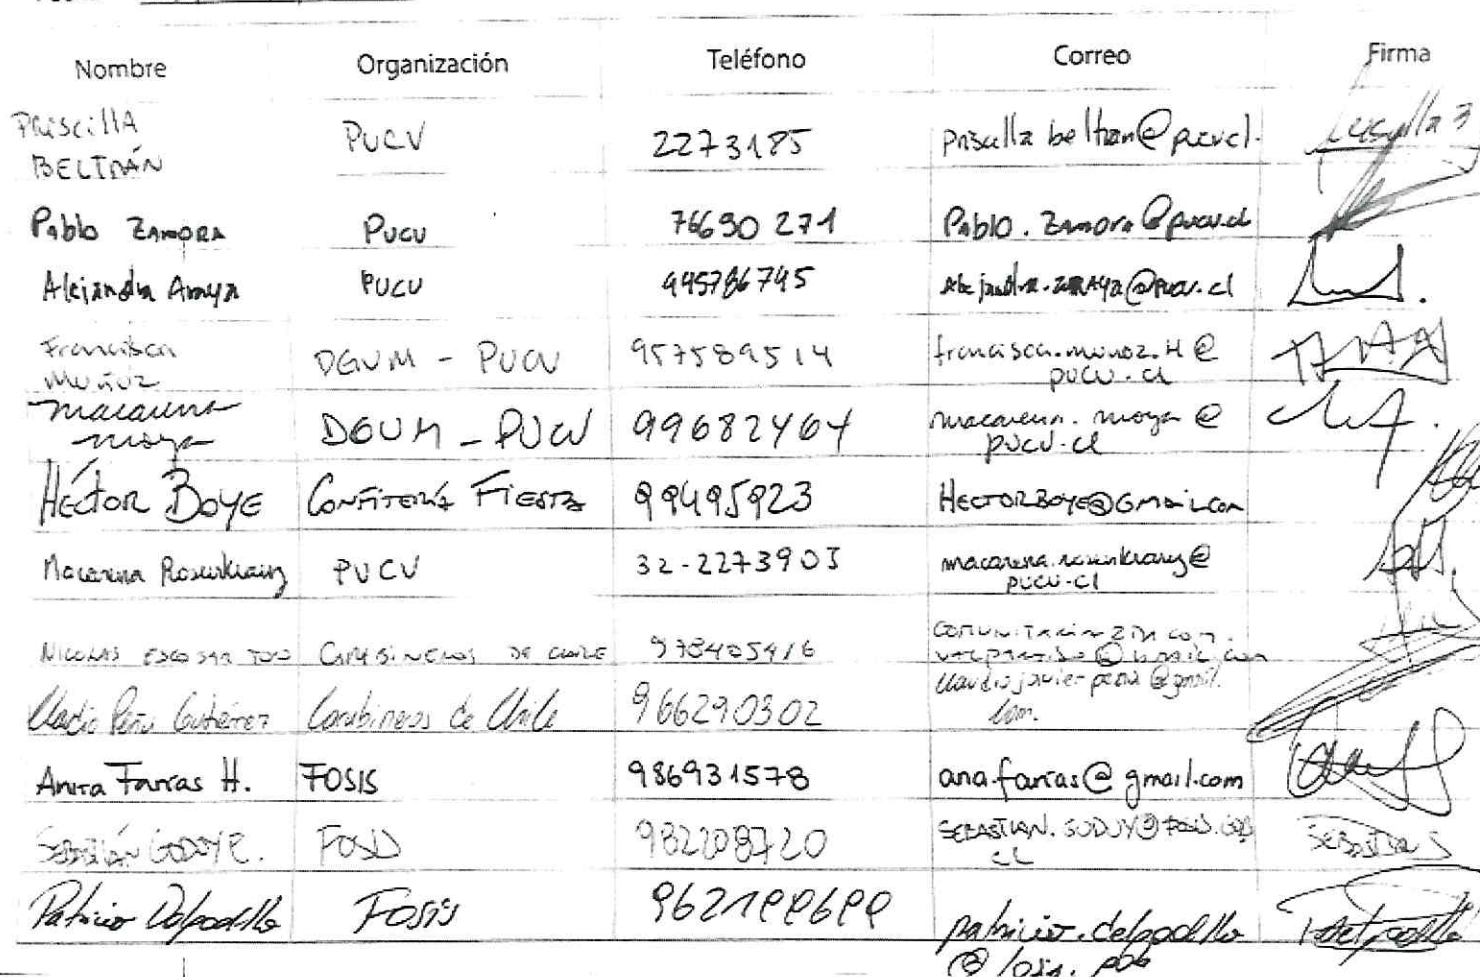 Nombre Organización Teléfono Correo Firma
Priscilla
BELTRÁN PUCV 2273185 priscilla beltran@pucv.cl.
Pablo ZAMORA PUCV 76690271 Pablo.Zamora@pucv.cl
Alejandra Araya PUCV 995786745 Alejandra.ARAYA@pucv.cl
Francisca
Muñoz DGVM - PUCV 957589514 francisca.munoz.H@
pucv.cl
Macarena
Moya DGVM - PUCV 99682464 macarena.moya@
pucv.cl
HÉCTOR BOYE CONFITERÍA FIESTA 99495923 HECTORBOYE@GMAIL.COM
Macarena Rosenkranz PUCV 32-2273903 macarena.rosenkranz@
pucv.cl
NICOLAS CARABINEROS DE CHILE 978405416
Claudio Peña Gutiérrez Carabineros de Chile 966290302 claudiojavier-pena@gmail.
com.
Anita Farías H. FOSIS 986931578 ana.farias@gmail.com
SEBASTIÁN GODOY R. FOSIS 982208720 SEBASTIAN.GODOY@FOSIS.GOB
CL SEBASTIAN
Patricio Delgadillo FOSIS 962199699 patricio.delgadillo
@fosis.gob